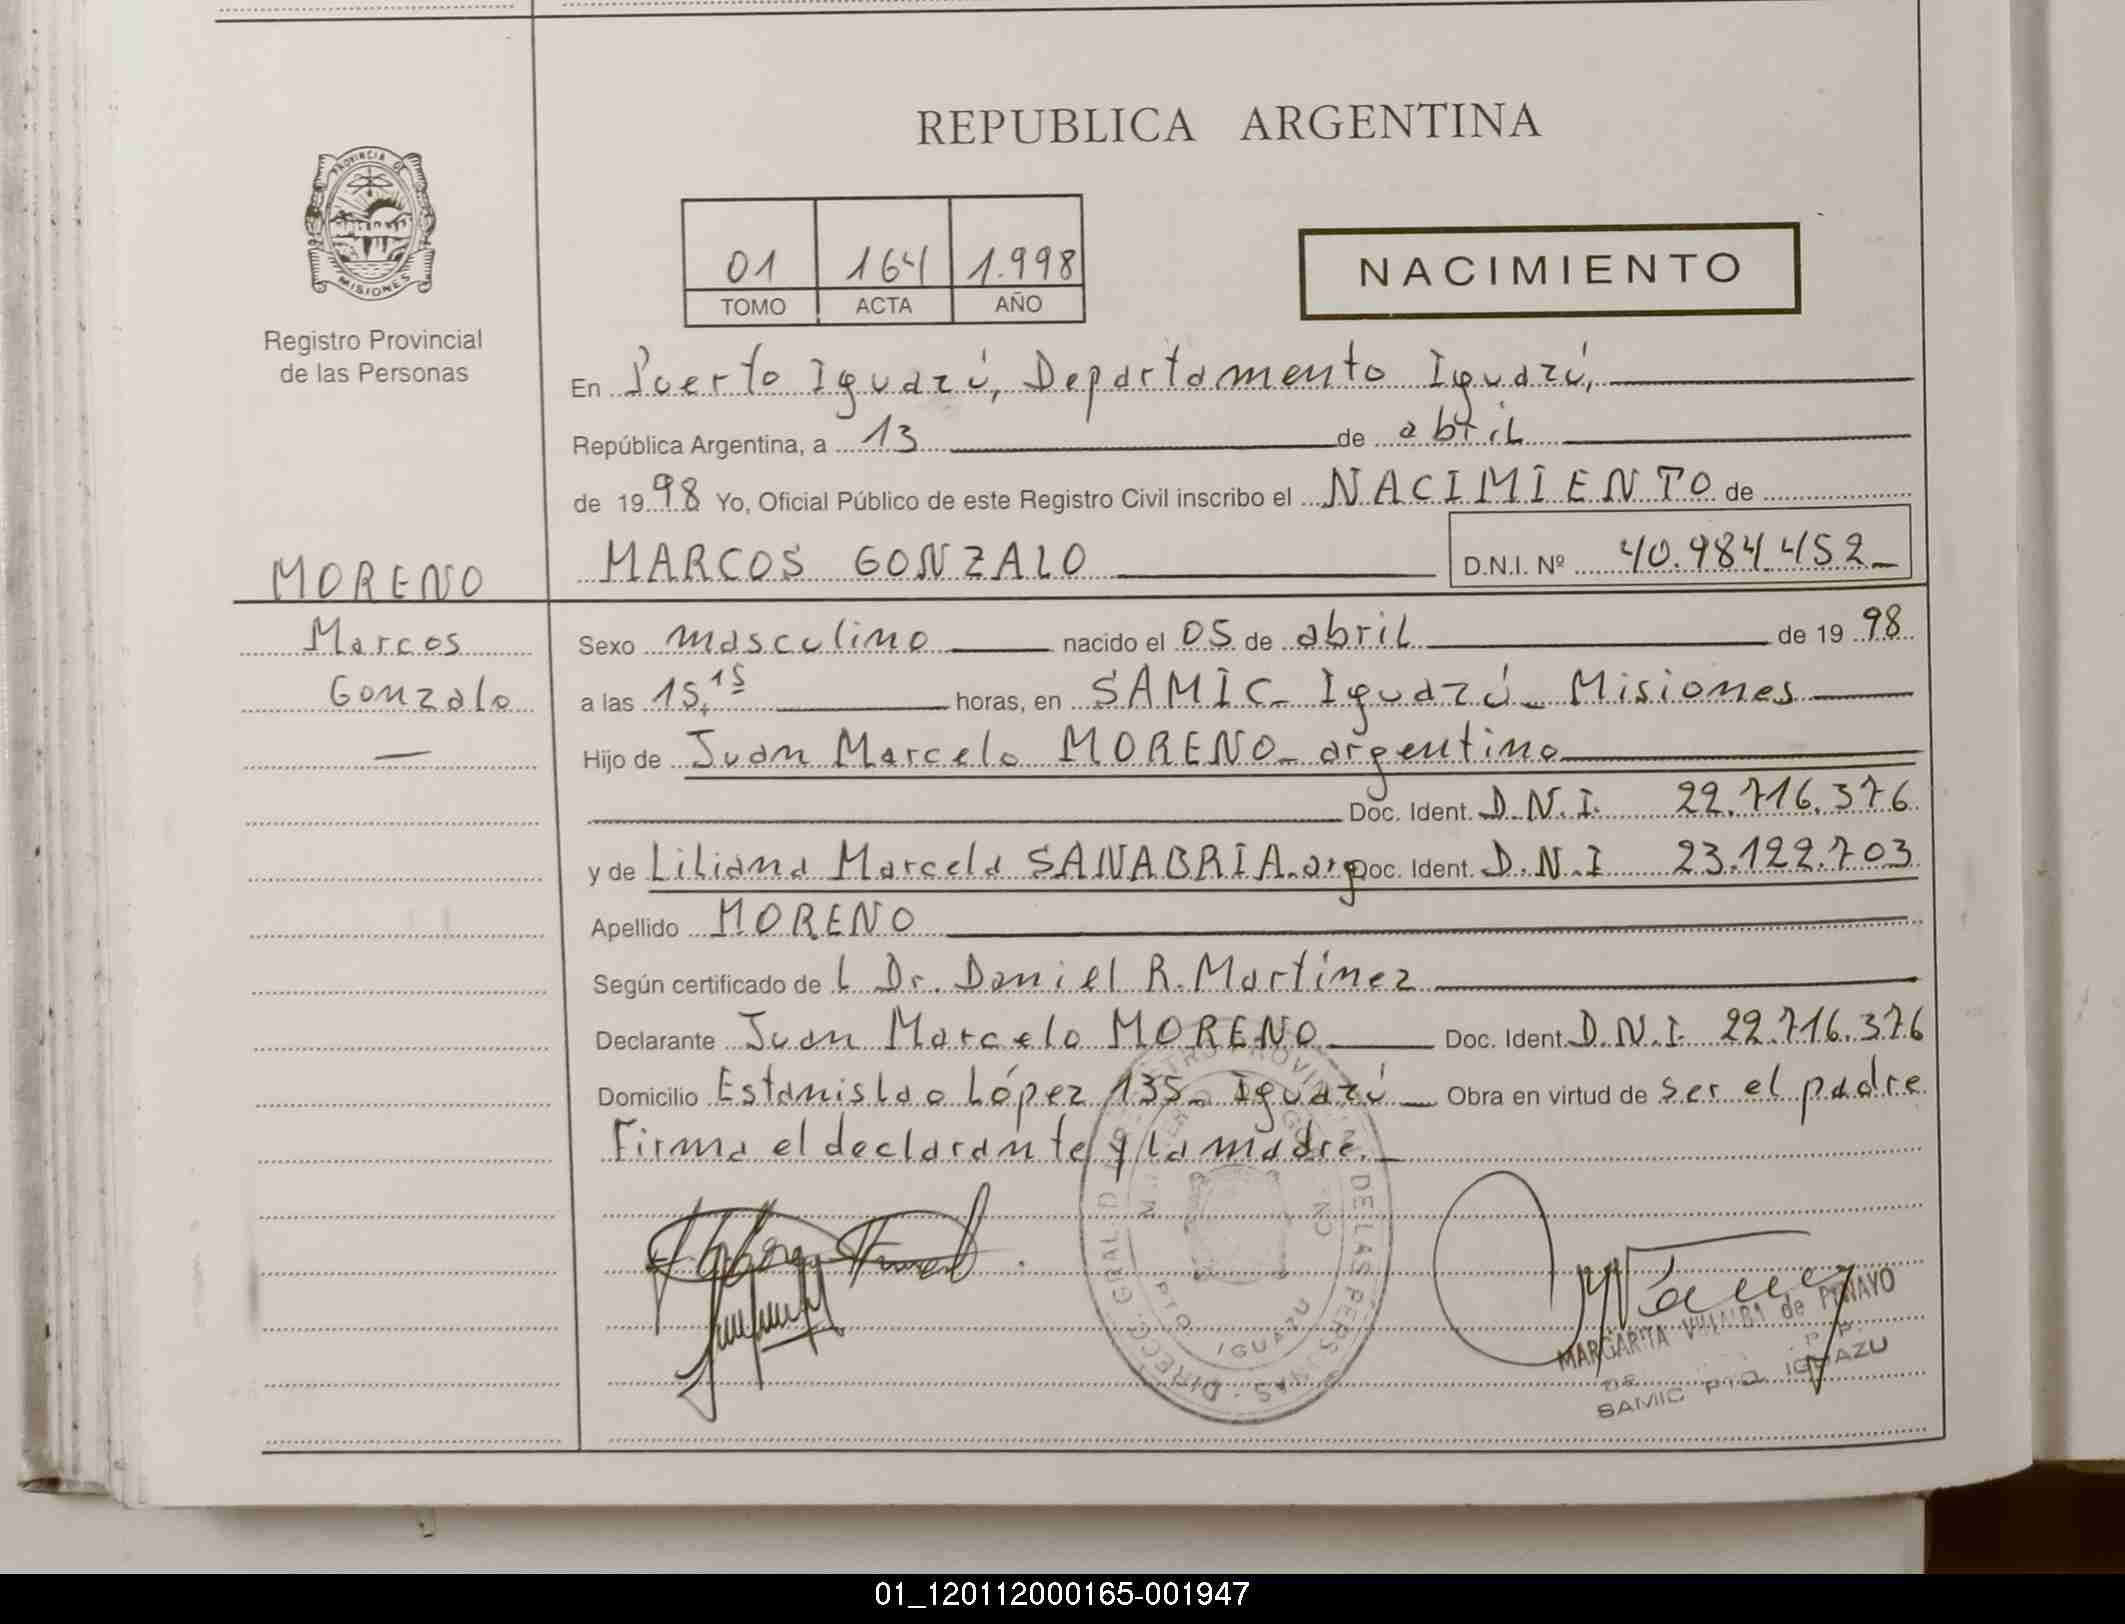 REPUBLICA ARGENTINA
PROVINCIA DE
MISIONES
Registro Provincial
de las Personas
01 164 1.998
TOMO ACTA AÑO
NACIMIENTO
En Puerto Iguazú, Departamento Iguazú,
República Argentina, a 13 de abril
de 1998 Yo, Oficial Público de este Registro Civil inscribo el NACIMIENTO de
MARCOS GONZALO D.N.I. Nº 40.984.452
MORENO
Marcos
Gonzalo
Sexo masculino nacido el 05 de abril de 1998
a las 15,15 horas, en SAMIC- Iguazú- Misiones
Hijo de Juan Marcelo MORENO- argentino
Doc. Ident. D.N.I. 22.716.376
y de Liliana Marcela SANABRIA.arg Doc. Ident. D.N.I 23.122.703
Apellido MORENO
Según certificado de l Dr. Daniel R. Martínez
Declarante Juan Marcelo MORENO Doc. Ident. D.N.I. 22.716.376
Domicilio Estanislao López 135- Iguazú Obra en virtud de ser el padre
Firma el declarante y la madre.
DE LAS PERSONAS - DIRECC. GRAL. D
PTO. IGUAZU
MARGARITA VILLALBA de PINAYO
SAMIC PTO. IGUAZU
01_120112000165-001947